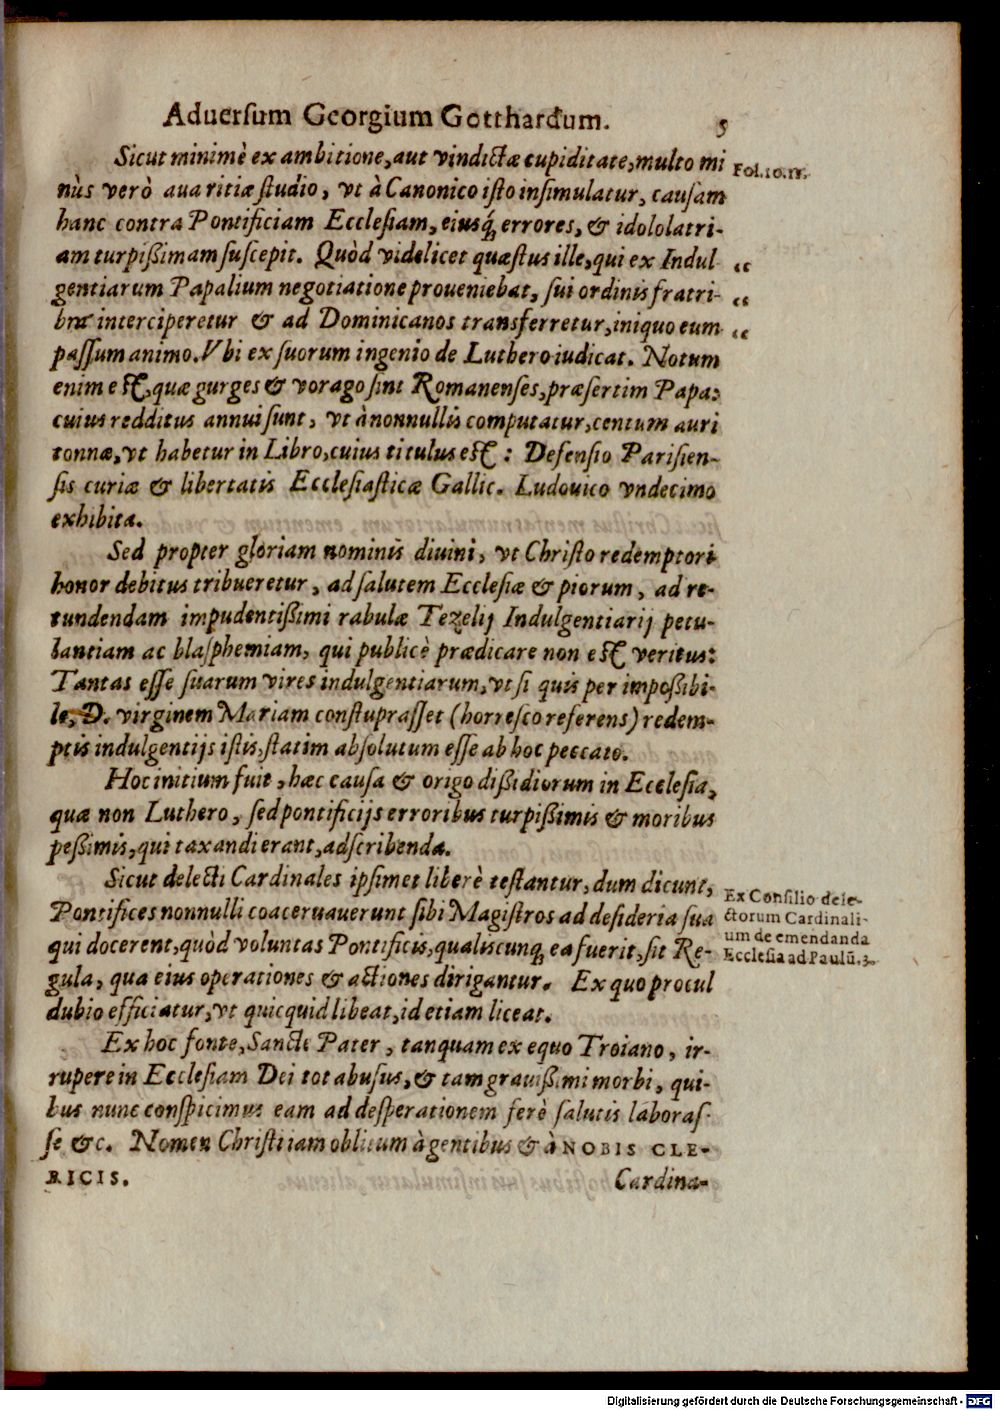 Aduersum Georgium Gotthardum. 5
Sicut minimè ex ambitione, aut vindictæ cupiditate, multo mi
nùs verò auaritiæ studio, vt à Canonico isto insimulatur, causam
hanc contra Pontificiam Ecclesiam, eiusq́; errores, & idololatri-
am turpißimam suscepit. Quòd videlicet quæstus ille, qui ex Indul
gentiarum Papalium negotiatione proueniebat, sui ordinis fratri-
bus interciperetur & ad Dominicanos transferretur, iniquo eum
passum animo. Vbi ex suorum ingenio de Luthero iudicat. Notum
enim est, quæ gurges & vorago sint Romanenses, præsertim Papa:
cuius redditus annui sunt, vt à nonnullis computatur, centum auri
tonnæ, vt habetur in Libro, cuius titulus est: Defensio Parisien-
sis curiæ & libertatis Ecclesiasticæ Gallic. Ludouico vndecimo
exhibita.
Fol. 10. 11.
“
“
“
Sed propter gloriam nominis diuini, vt Christo redemptori
honor debitus tribueretur, ad salutem Ecclesiæ & piorum, ad re-
tundendam impudentißimi rabulæ Tezelij Indulgentiarij petu-
lantiam ac blasphemiam, qui publicè prædicare non est veritus:
Tantas esse suarum vires indulgentiarum, vt si quis per impoßibi-
le, D. virginem Mariam constuprasset (horresco referens) redem-
ptis indulgentijs istis, statim absolutum esse ab hoc peccato.
Hoc initium fuit, hæc causa & origo dißidiorum in Ecclesia,
quæ non Luthero, sed pontificijs erroribus turpißimis & moribus
peßimis, qui taxandi erant, adscribenda.
Sicut delecti Cardinales ipsimet liberè testantur, dum dicunt,
Pontifices nonnulli coaceruauerunt sibi Magistros ad desideria sua
qui docerent, quòd voluntas Pontificis, qualiscunq; ea fuerit, sit Re-
gula, qua eius operationes & actiones dirigantur. Ex quo procul
dubio efficiatur, vt quicquid libeat, id etiam liceat.
Ex Consilio dele-
ctorum Cardinali-
um de emendanda
Ecclesia ad Paulū. 3.
Ex hoc fonte, Sancte Pater, tanquam ex equo Troiano, ir-
rupere in Ecclesiam Dei tot abusus, & tam grauißimi morbi, qui-
bus nunc conspicimus eam ad desperationem ferè salutis laboras-
se &c. Nomen Christi iam oblitum à gentibus & à NOBIS CLE-
RICIS.
Cardina-
Digitalisierung gefördert durch die Deutsche Forschungsgemeinschaft - DFG